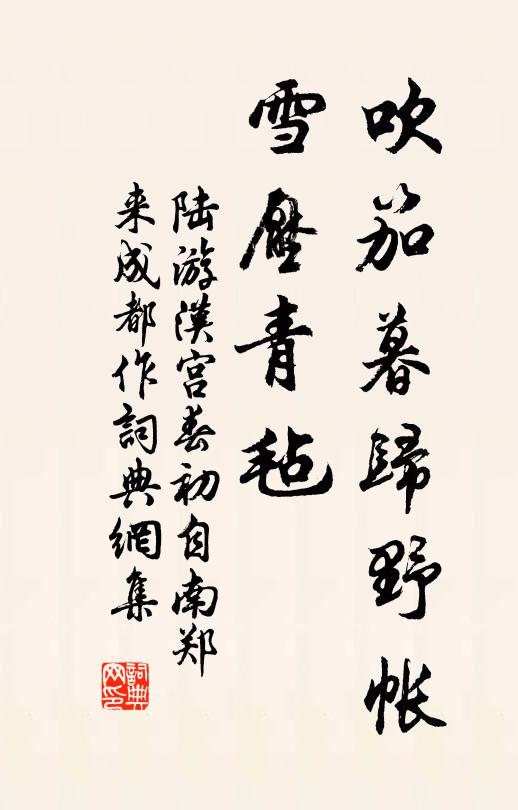 吹笳暮歸野帳
雪壓青毡
陆游漢宮春初自南郑
来成都作詞典網集
詞典网印